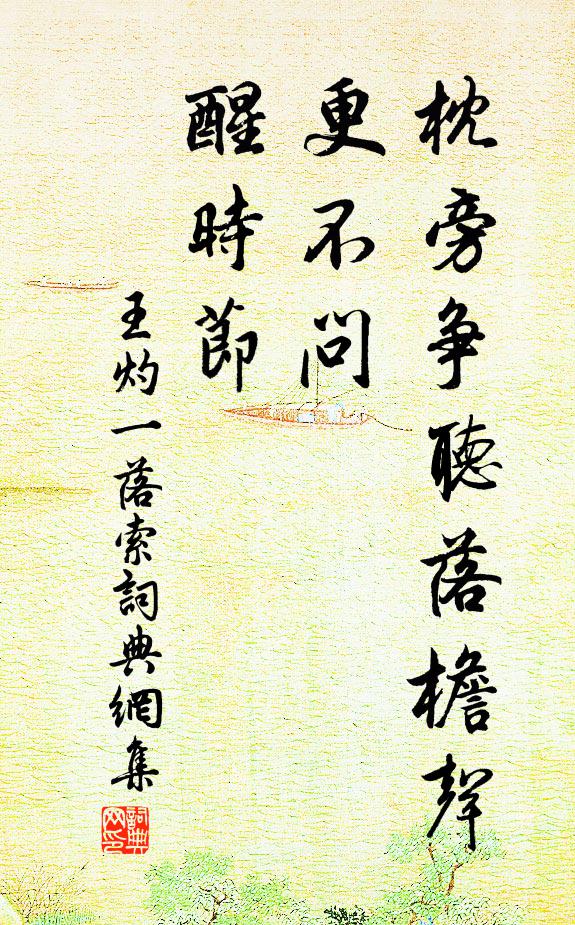 枕旁爭聽落檐聲
更不問
醒時節
王灼一落索詞典網集
詞典网印